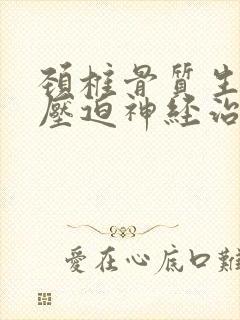 頚椎骨質生
壓迫神経治
愛在心底口難